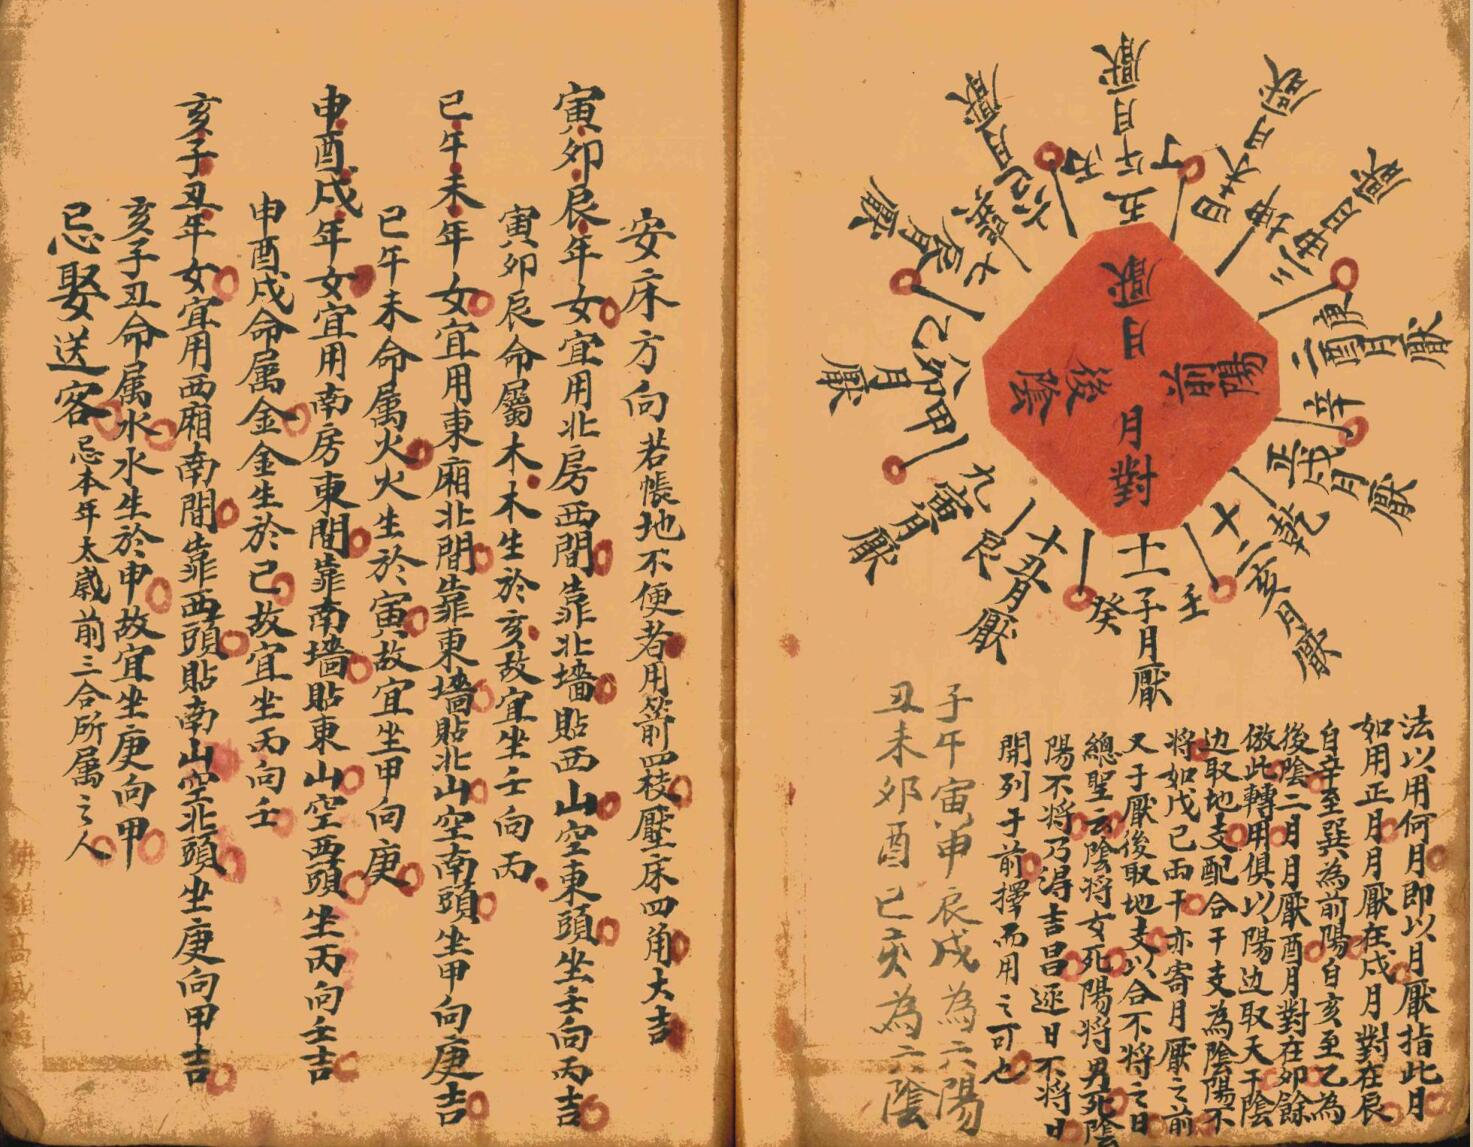 厭月
月對
前陽
後陰
十一子月厭
壬
癸
十丑月厭
艮
九寅月厭
甲
八卯月厭
乙
七辰月厭
巽
六巳月厭
丙
五午月厭
丁
四未月厭
坤
三申月厭
庚
二酉月厭
辛
正戌月厭
乾
十二亥月厭
法以用何月即以月厭指此月
如用正月月厭在戌月對在辰
自辛至巽為前陽自亥至乙為
後陰二月月厭酉月對在卯餘
倣此轉用俱以陽边取天干陰
边取地支配合干支為陰陽不
將如戊己兩干亦寄月厭之前
又于厭後取地支以合不將之日
總聖云陰將女死陽將男死陰
陽不將乃得吉昌逐日不將日
開列于前擇而用之可也
子午寅申辰戌為六陽
丑未卯酉巳亥為六陰
安床方向若帳地不便者用箭四枝壓床四角大吉
寅卯辰年女宜用北房西間靠北墻貼西山空東頭坐壬向丙吉
寅卯辰命屬木木生於亥故宜坐壬向丙
巳午未年女宜用東廂北間靠東墻貼北山空南頭坐甲向庚吉
巳午未命属火火生於寅故宜坐甲向庚
申酉戌年女宜用南房東間靠南墻貼東山空西頭坐丙向壬吉
申酉戌命属金金生於巳故宜坐丙向壬
亥子丑年女宜用西廂南間靠西頭貼南山空北頭坐庚向甲吉
亥子丑命属水水生於申故宜坐庚向甲
忌娶送客忌本年太歲前三合所属之人